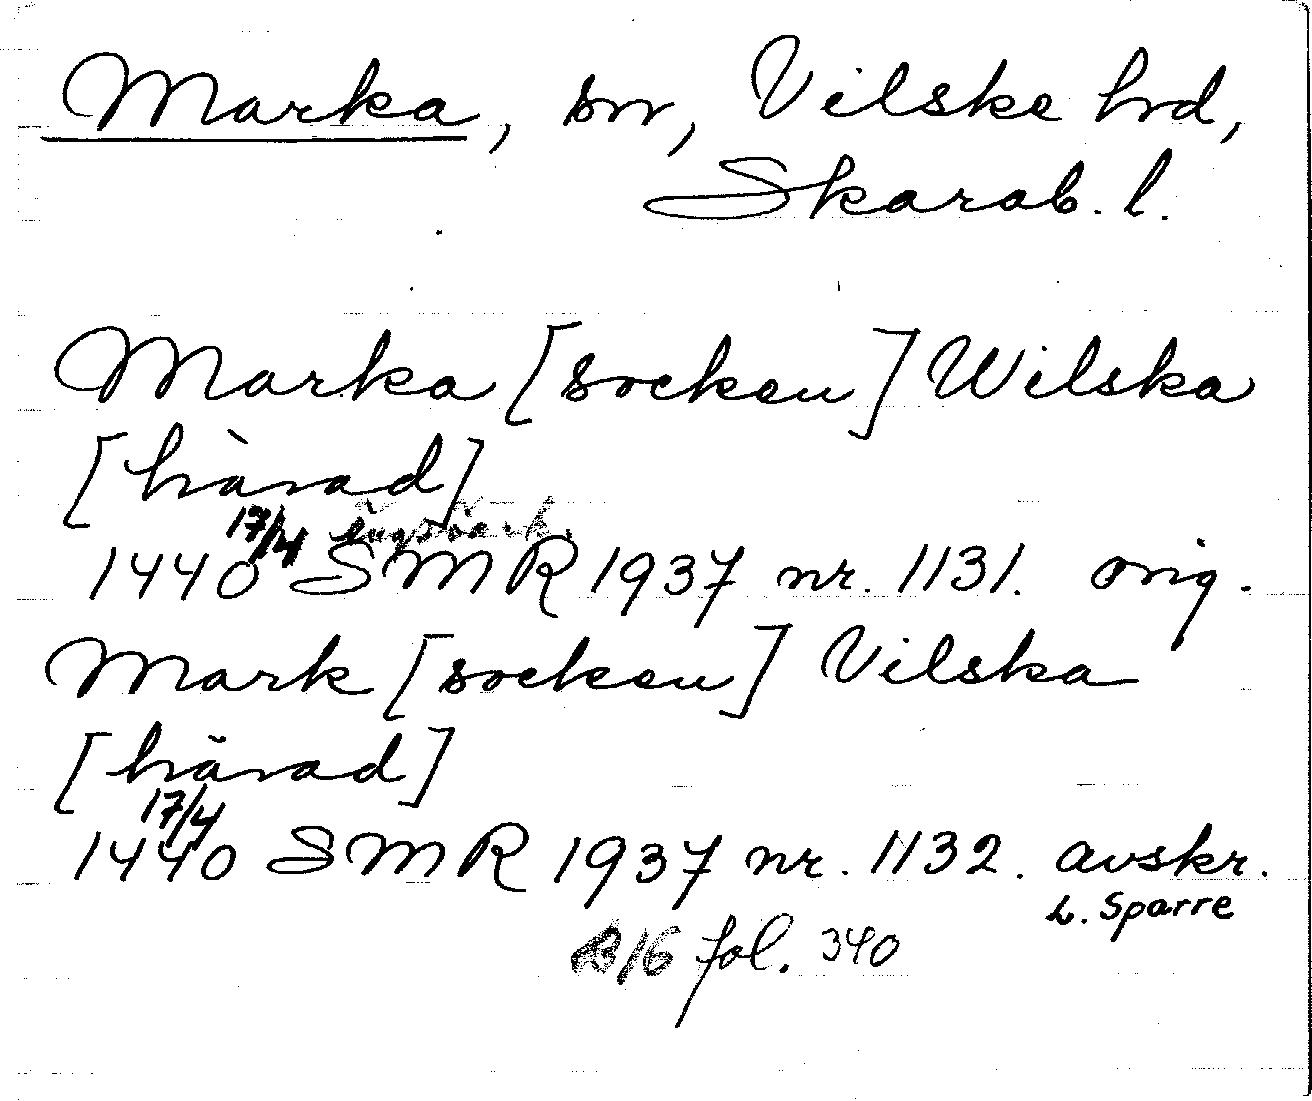 Marka, sn, Vilske hrd,
Skarab. l.
Marka [socken] Wilska
[härad]
17/4
1440 SMR 1937 nr. 1131. orig.
Mark [socken] Vilska
[härad]
17/4
1440 SMR 1937 nr. 1132. avskr.
L. Sparre
B16 fol. 340